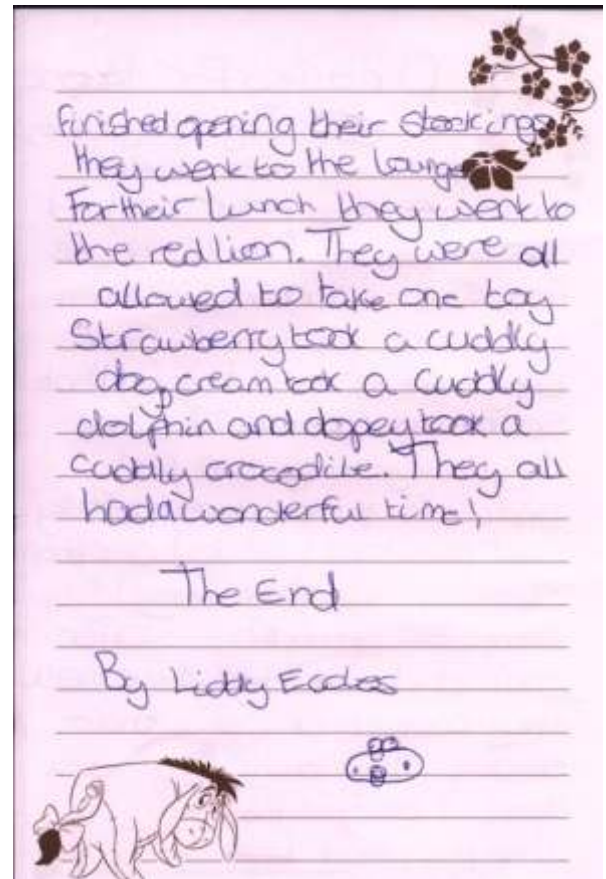 finished opening their stockings
they went to the lounge
For their Lunch they went to
the red lion. They were all
allowed to take one toy
Strawberry took a cuddly
dog, cream took a cuddly
dolphin and dopey took a
cuddly crocodile. They all
had a wonderful time!
The End
By Liddy Eccles